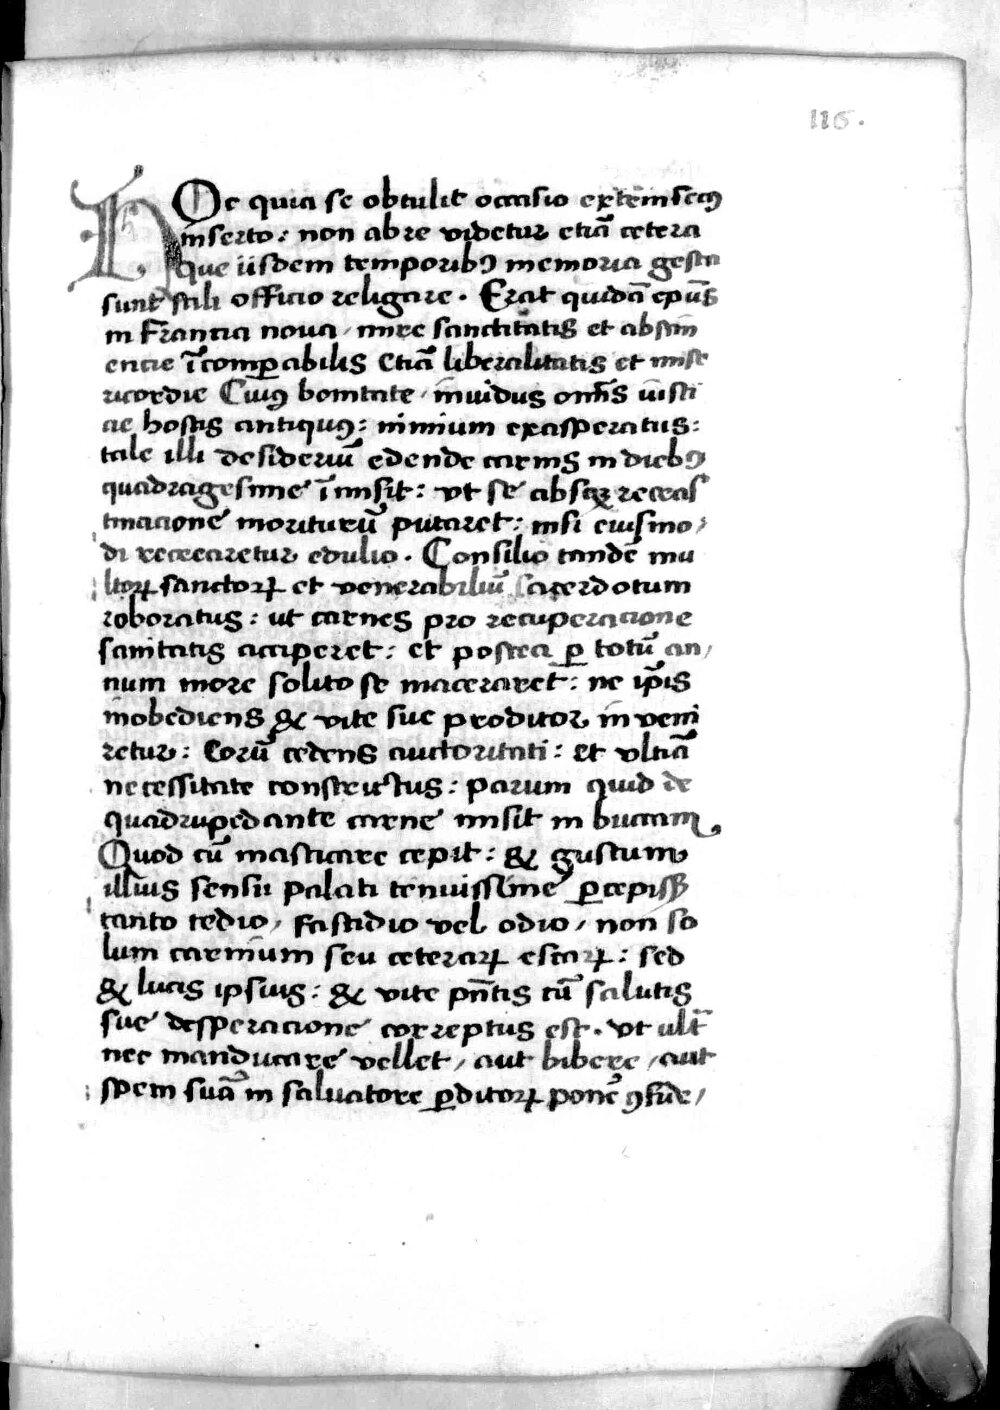 116.
HOc quia se obtulit occasio extrinsecꝰ
inserto: non abre videtur etiā cetera
que iisdem temporibꝰ memoria gesta
sunt stili officio religare. Erat quidā ep̄us
in Francia noua, mire sanctitatis et abstin
encie īcomꝑabilis etiā liberalitatis et mise
ricordie Cuiꝰ bonitate, inuidus om̄s iusti
ae hostis antiquꝰ: nimium exasperatus:
tale illi desideriū edende carnis in diebꝰ
quadragesime īmisit: vt se absqꝫ reccas
tinacione moriturū putaret: nisi eiusmo,
di recrearetur edulio. Consilio tandē mu
ltoꝝ sanctoꝝ et venerabiliū sacerdotum
roboratus: ut carnes pro recuperacione
sanitatis acciperet: et postea ꝑ totū an,
num more solito se maceraret: ne ip̄is
inobediens & vite sue proditor in veni
retur: Eorū cedens auctoritati: et vltiā
necessitate constrictus: parum quid de
quadrupedante carne misit in buccam,
Quod cū masticare cepit: & gustum
illius sensu palati tenuissime ꝑcepiss;
tanto tedio, fastidio vel odio, non so
lum carnium seu ceteraꝝ escaꝝ: sed
& lucis ipsius: & vite pn̄tis cū salutis
sue desperacione correptus est. vt ult̄
nec manducare vellet, aut bibere, aut
spem suā in saluatore ꝑditoꝝ ponē ꝯfide,